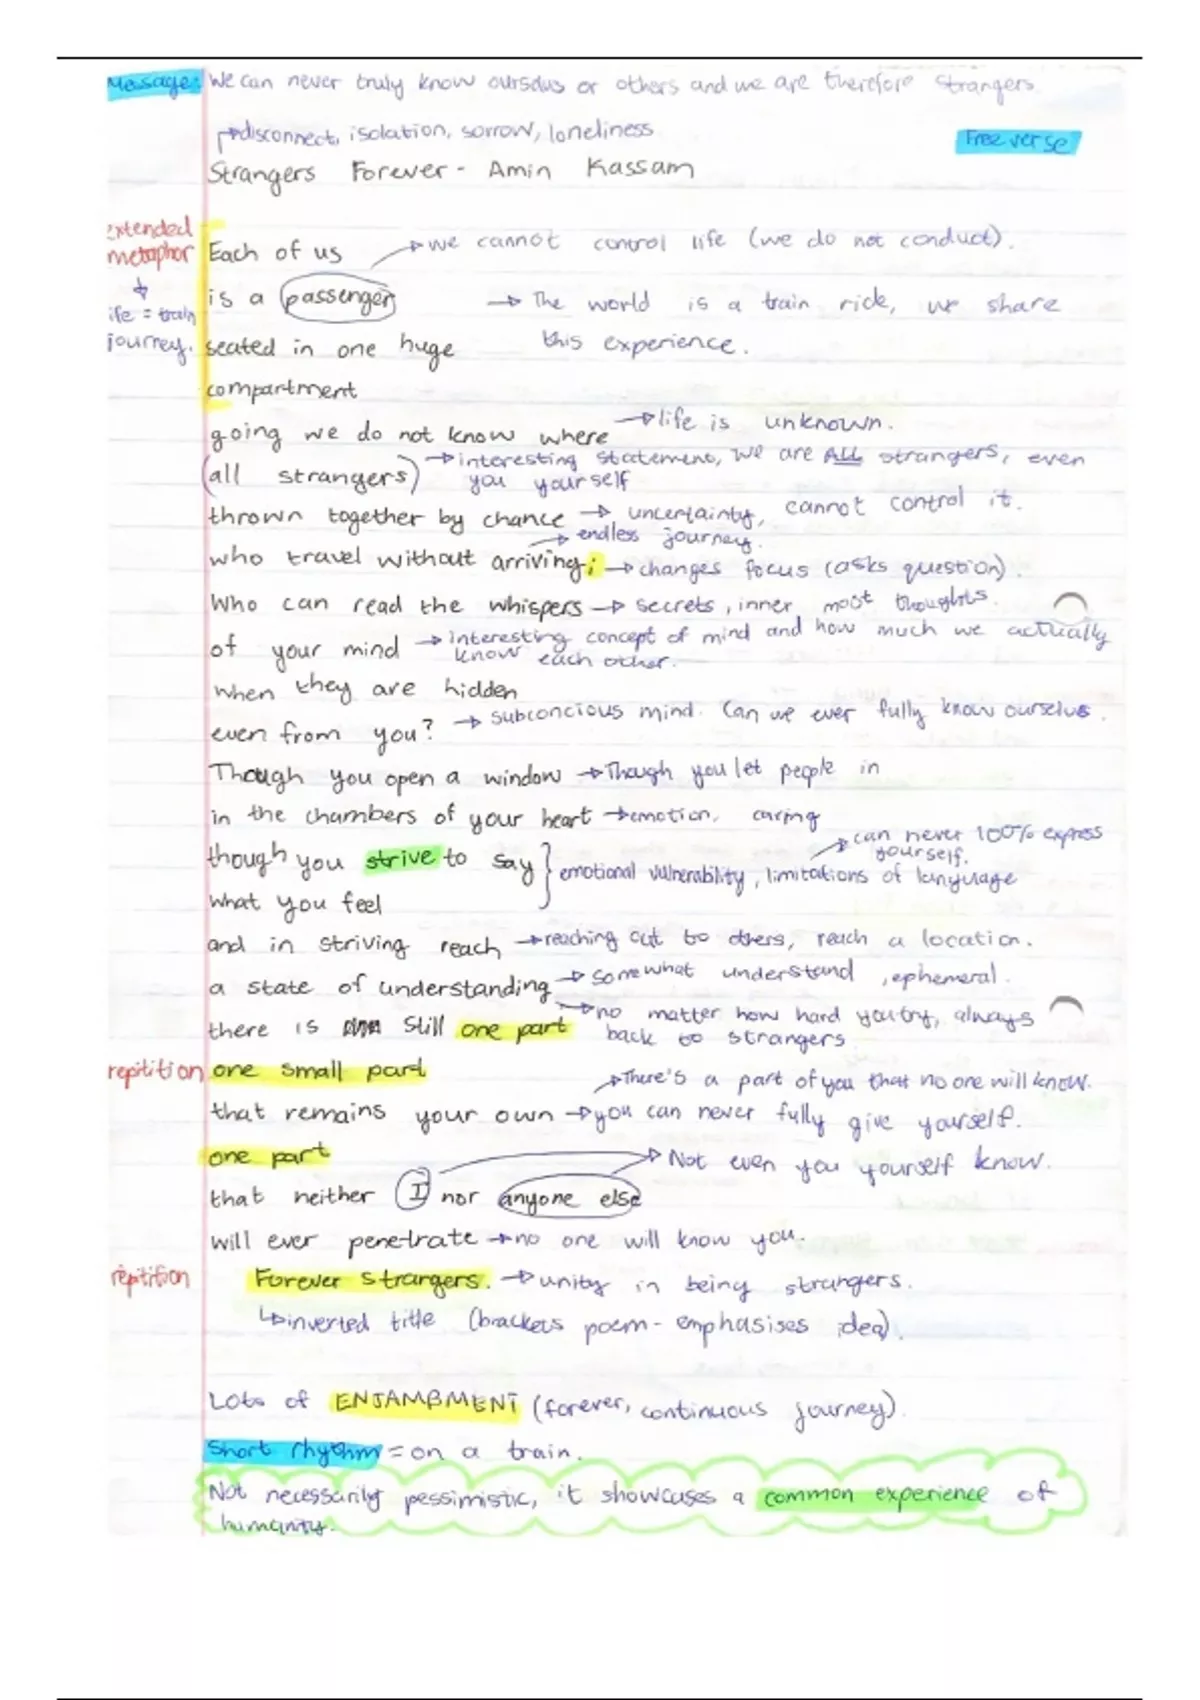 Message: We can never truly know ourselves or others and we are therefore strangers.
↱disconnect, isolation, sorrow, loneliness
Free verse
Strangers Forever - Amin Kassam
extended
metaphor
↓
life = train
journey.
Each of us → we cannot control life (we do not conduct).
is a passenger → The world is a train ride, we share
seated in one huge this experience.
compartment
going we do not know where → life is unknown.
(all strangers) → interesting statement, we are ALL strangers, even
you yourself
thrown together by chance → uncertainty, cannot control it.
→ endless journey.
who travel without arriving; → changes focus (asks question).
Who can read the whispers → secrets, inner most thoughts.
of your mind → interesting concept of mind and how much we actually
know each other.
when they are hidden
even from you? → subconcious mind. Can we ever fully know ourselves.
Though you open a window → Though you let people in
in the chambers of your heart → emotion, caring
→ can never 100% express
yourself.
though you strive to say } emotional vulnerability, limitations of language
what you feel
and in striving reach → reaching out to others, reach a location.
a state of understanding → somewhat understand, ephemeral.
→ no matter how hard you try, always
there is still one part back to strangers
repitition one small part
→ There's a part of you that no one will know.
that remains your own → you can never fully give yourself.
one part → Not even you yourself know.
that neither I nor anyone else
will ever penetrate → no one will know you.
repitition Forever strangers. → unity in being strangers.
↳ inverted title (brackets poem - emphasises idea).
Lots of ENJAMBMENT (forever, continuous journey).
Short rhythm = on a train.
Not necessarily pessimistic, it showcases a common experience of
humanity.